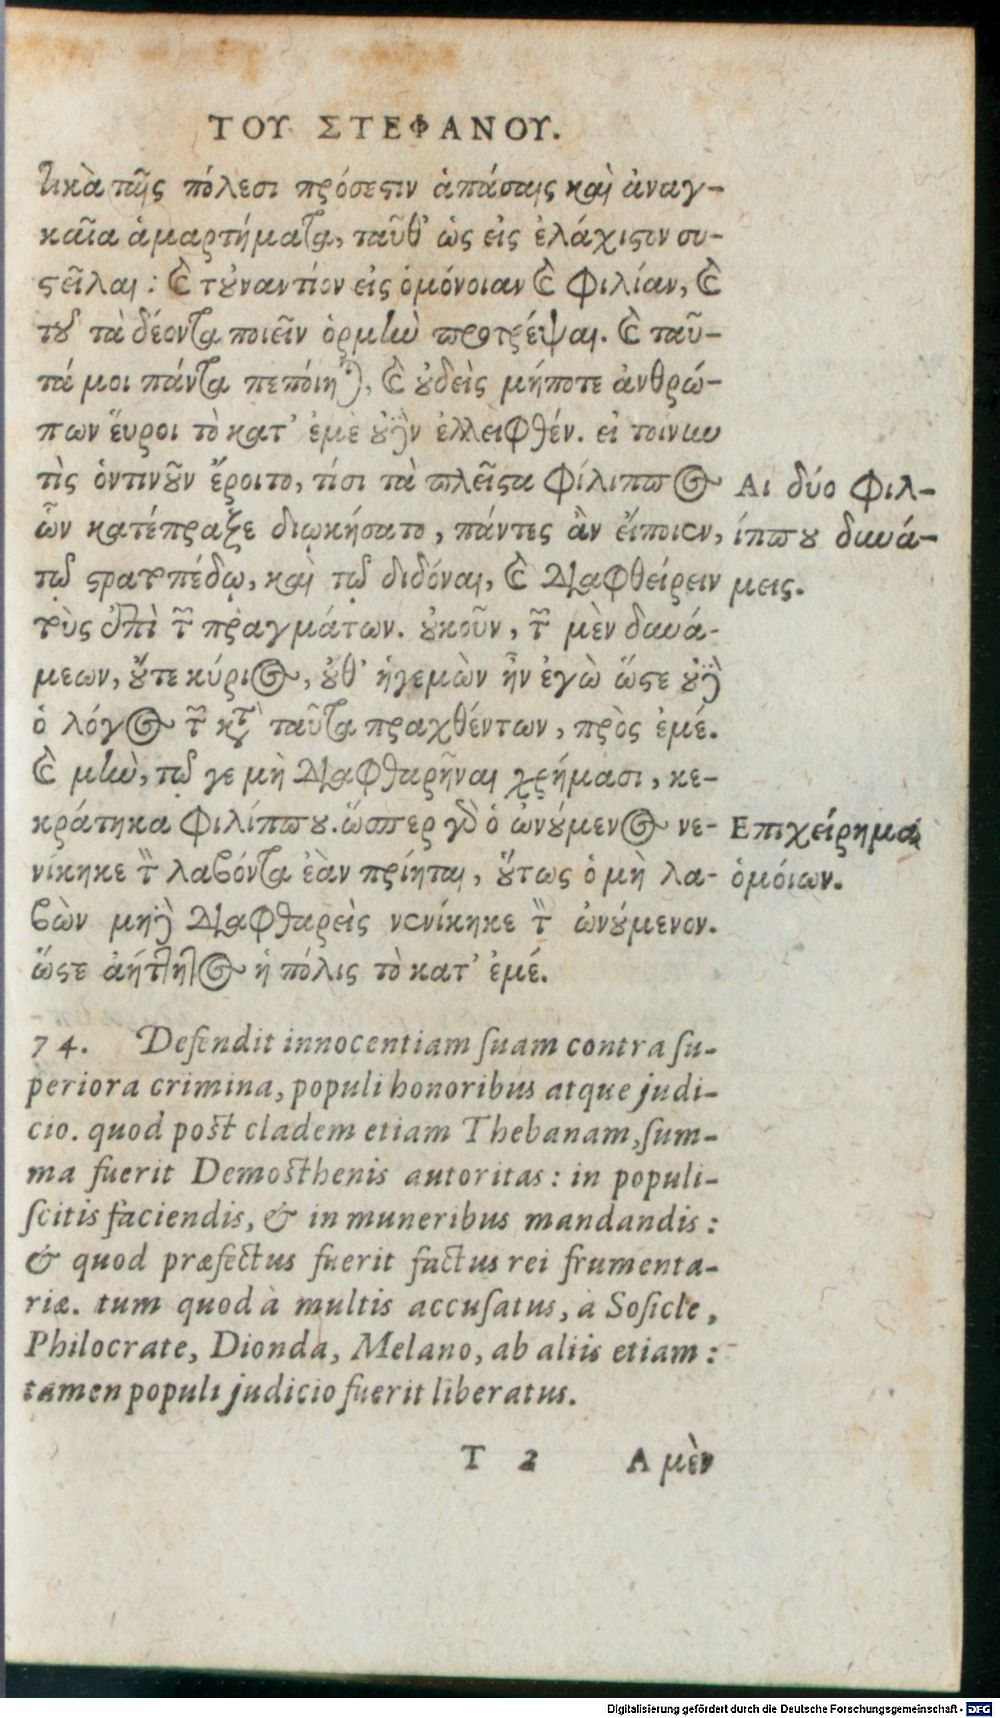 ΤΟΥ ΣΤΕΦΑΝΟΥ.
τικὰ ταῖς πόλεσι πρόσεστιν ἁπάσαις καὶ ἀναγ-
καῖα ἁμαρτήματα, ταῦθ' ὡς εἰς ἐλάχιστον συ-
στεῖλαι : καὶ τοὐναντίον εἰς ὁμόνοιαν καὶ φιλίαν, καὶ
τοῦ τὰ δέοντα ποιεῖν ὁρμὴν προτρέψαι. καὶ ταῦ-
τά μοι πάντα πεπόιηται, καὶ οὐδεὶς μήποτε ἀνθρώ-
πων ἕυροι τὸ κατ' ἐμὲ οὐδὲν ἐλλειφθέν. εἰ τοίνυν
τὶς ὁντινοῦν ἔροιτο, τίσι τὰ πλεῖστα Φίλιππος
ὧν κατέπραξε διῳκήσατο, πάντες ἂν εἴποιεν,
τῷ στρατοπέδῳ, καὶ τῷ διδόναι, καὶ διαφθείρειν
τοὺς ἐπὶ τῶν πραγμάτων. οὐκοῦν, τῶν μὲν δυνά-
μεων, οὔτε κύριος, οὔθ' ἡγεμὼν ἦν ἐγὼ ὥστε οὐδὲ
ὁ λόγος τῶν κατὰ ταῦτα πραχθέντων, πρὸς ἐμέ.
καὶ μὴν, τῷ γε μὴ διαφθαρῆναι χρήμασι, κε-
κράτηκα Φιλίππου. ὥσπερ γὰρ ὁ ὠνούμενος νε-
νίκηκε τὸν λαβόντα ἐὰν πρίηται, οὕτως ὁ μὴ λα-
βὼν μηδὲ διαφθαρεὶς νενίκηκε τὸν ὠνούμενον.
ὥστε ἀήττητος ἡ πόλις τὸ κατ' ἐμέ.
Αι δύο Φιλ-
ίππου δυνά-
μεις.
Επιχείρημα
ὁμόιων.
74. Defendit innocentiam suam contra su-
periora crimina, populi honoribus atque judi-
cio. quod post cladem etiam Thebanam, sum-
ma fuerit Demosthenis autoritas: in populi-
scitis faciendis, & in muneribus mandandis:
& quod præfectus fuerit factus rei frumenta-
riæ. tum quod à multis accusatus, à Sosicle,
Philocrate, Dionda, Melano, ab aliis etiam:
tamen populi judicio fuerit liberatus.
T 2 Α μὲν
Digitalisierung gefördert durch die Deutsche Forschungsgemeinschaft - DFG